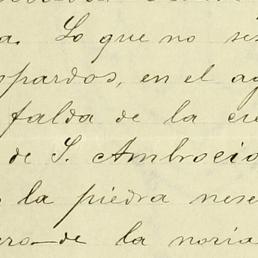 a. Lo que no sé
pardos, en el ag
falda de la cu
de S. Ambrocio
la piedra nese
ero de la noria